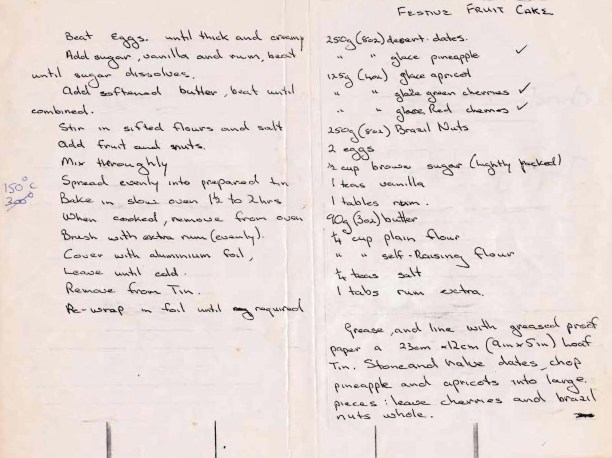 FESTIVE FRUIT CAKE
250g (8oz) desert dates.
" " glace pineapple ✓
125g (4oz) glace apricot
" " glace green cherries ✓
" " glace Red cherries ✓
250g (8oz) Brazil Nuts
2 eggs
½ cup brown sugar (lightly packed)
1 teas vanilla
1 tables rum.
90g (3oz) butter
¼ cup plain flour
" " self-Raising flour
¼ teas salt
1 tabs rum extra.
Grease, and line with greased proof
paper a 23cm x 12cm (9in x 5in) Loaf
Tin. Stone and halve dates, chop
pineapple and apricots into large
pieces: leave cherries and brazil
nuts whole.
Beat Eggs. until thick and creamy
Add sugar, vanilla and rum, beat
until sugar dissolves.
Add softened butter, beat until
combined.
Stir in sifted flours and salt
Add fruit and nuts.
Mix throughly
Spread evenly into prepared tin
150°C
300°
Bake in slow oven 1½ to 2hrs
When cooked, remove from oven
Brush with extra rum (evenly).
Cover with aluminium foil,
Leave until cold.
Remove from Tin.
Re-wrap in foil until required